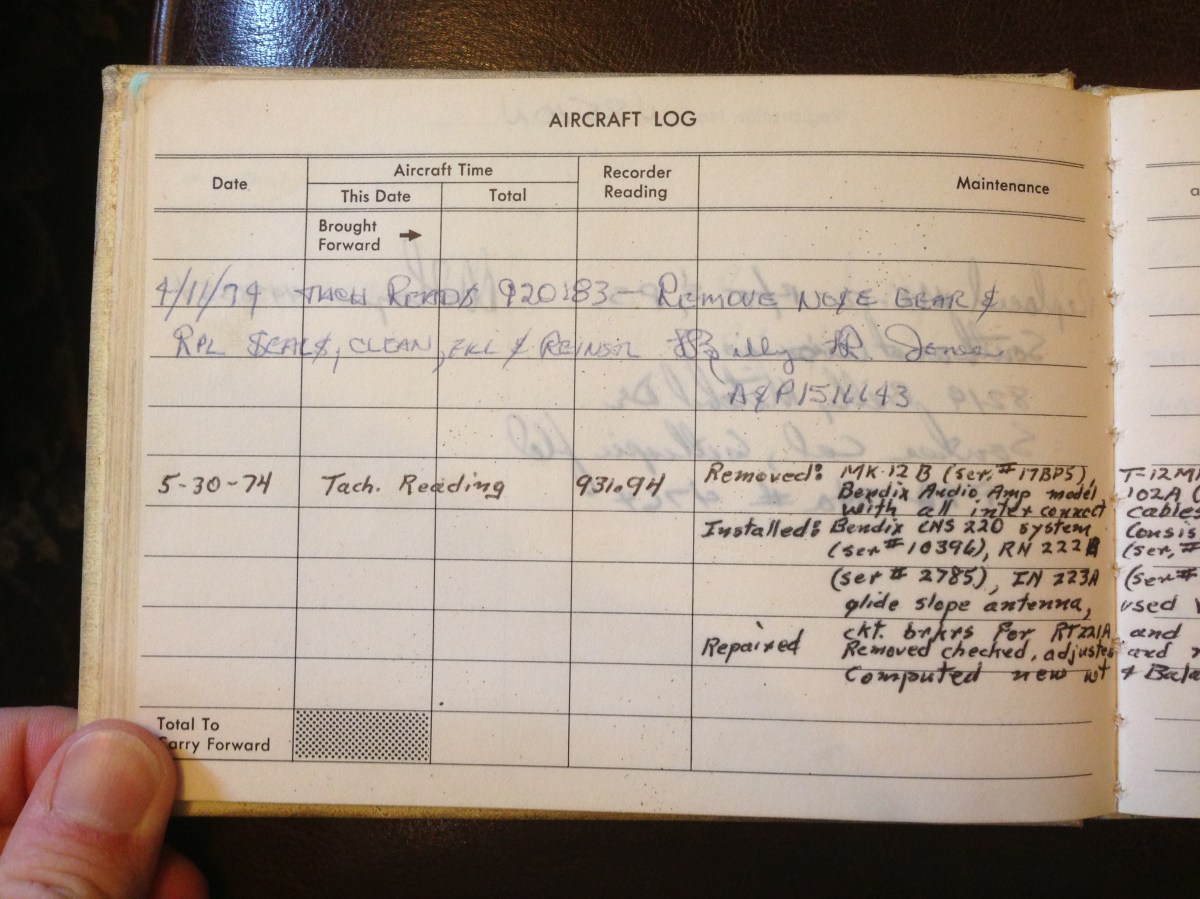 AIRCRAFT LOG
Date
Aircraft Time
Recorder Reading
Maintenance
This Date
Total
Brought Forward
4/11/74 TACH READS 920.83 - REMOVE NOSE GEAR &
RPL SEALS, CLEAN, FILL & REINSTL Billy R.
A&P
5-30-74 Tach. Reading 931.94 Removed: MK-12 B (ser. # 17BP5), T-12M
Bendix Audio Amp model 102A (
with all interconnect cables
Installed: Bendix CNS 220 system Consis
(ser # 10396), RN 222 (ser. #
(ser # 2785), IN 223A (ser #
glide slope antenna, used
ckt. brkrs for RT221A and
Repaired Removed checked, adjusted and
Computed new wt & Bala
Total To
Carry Forward